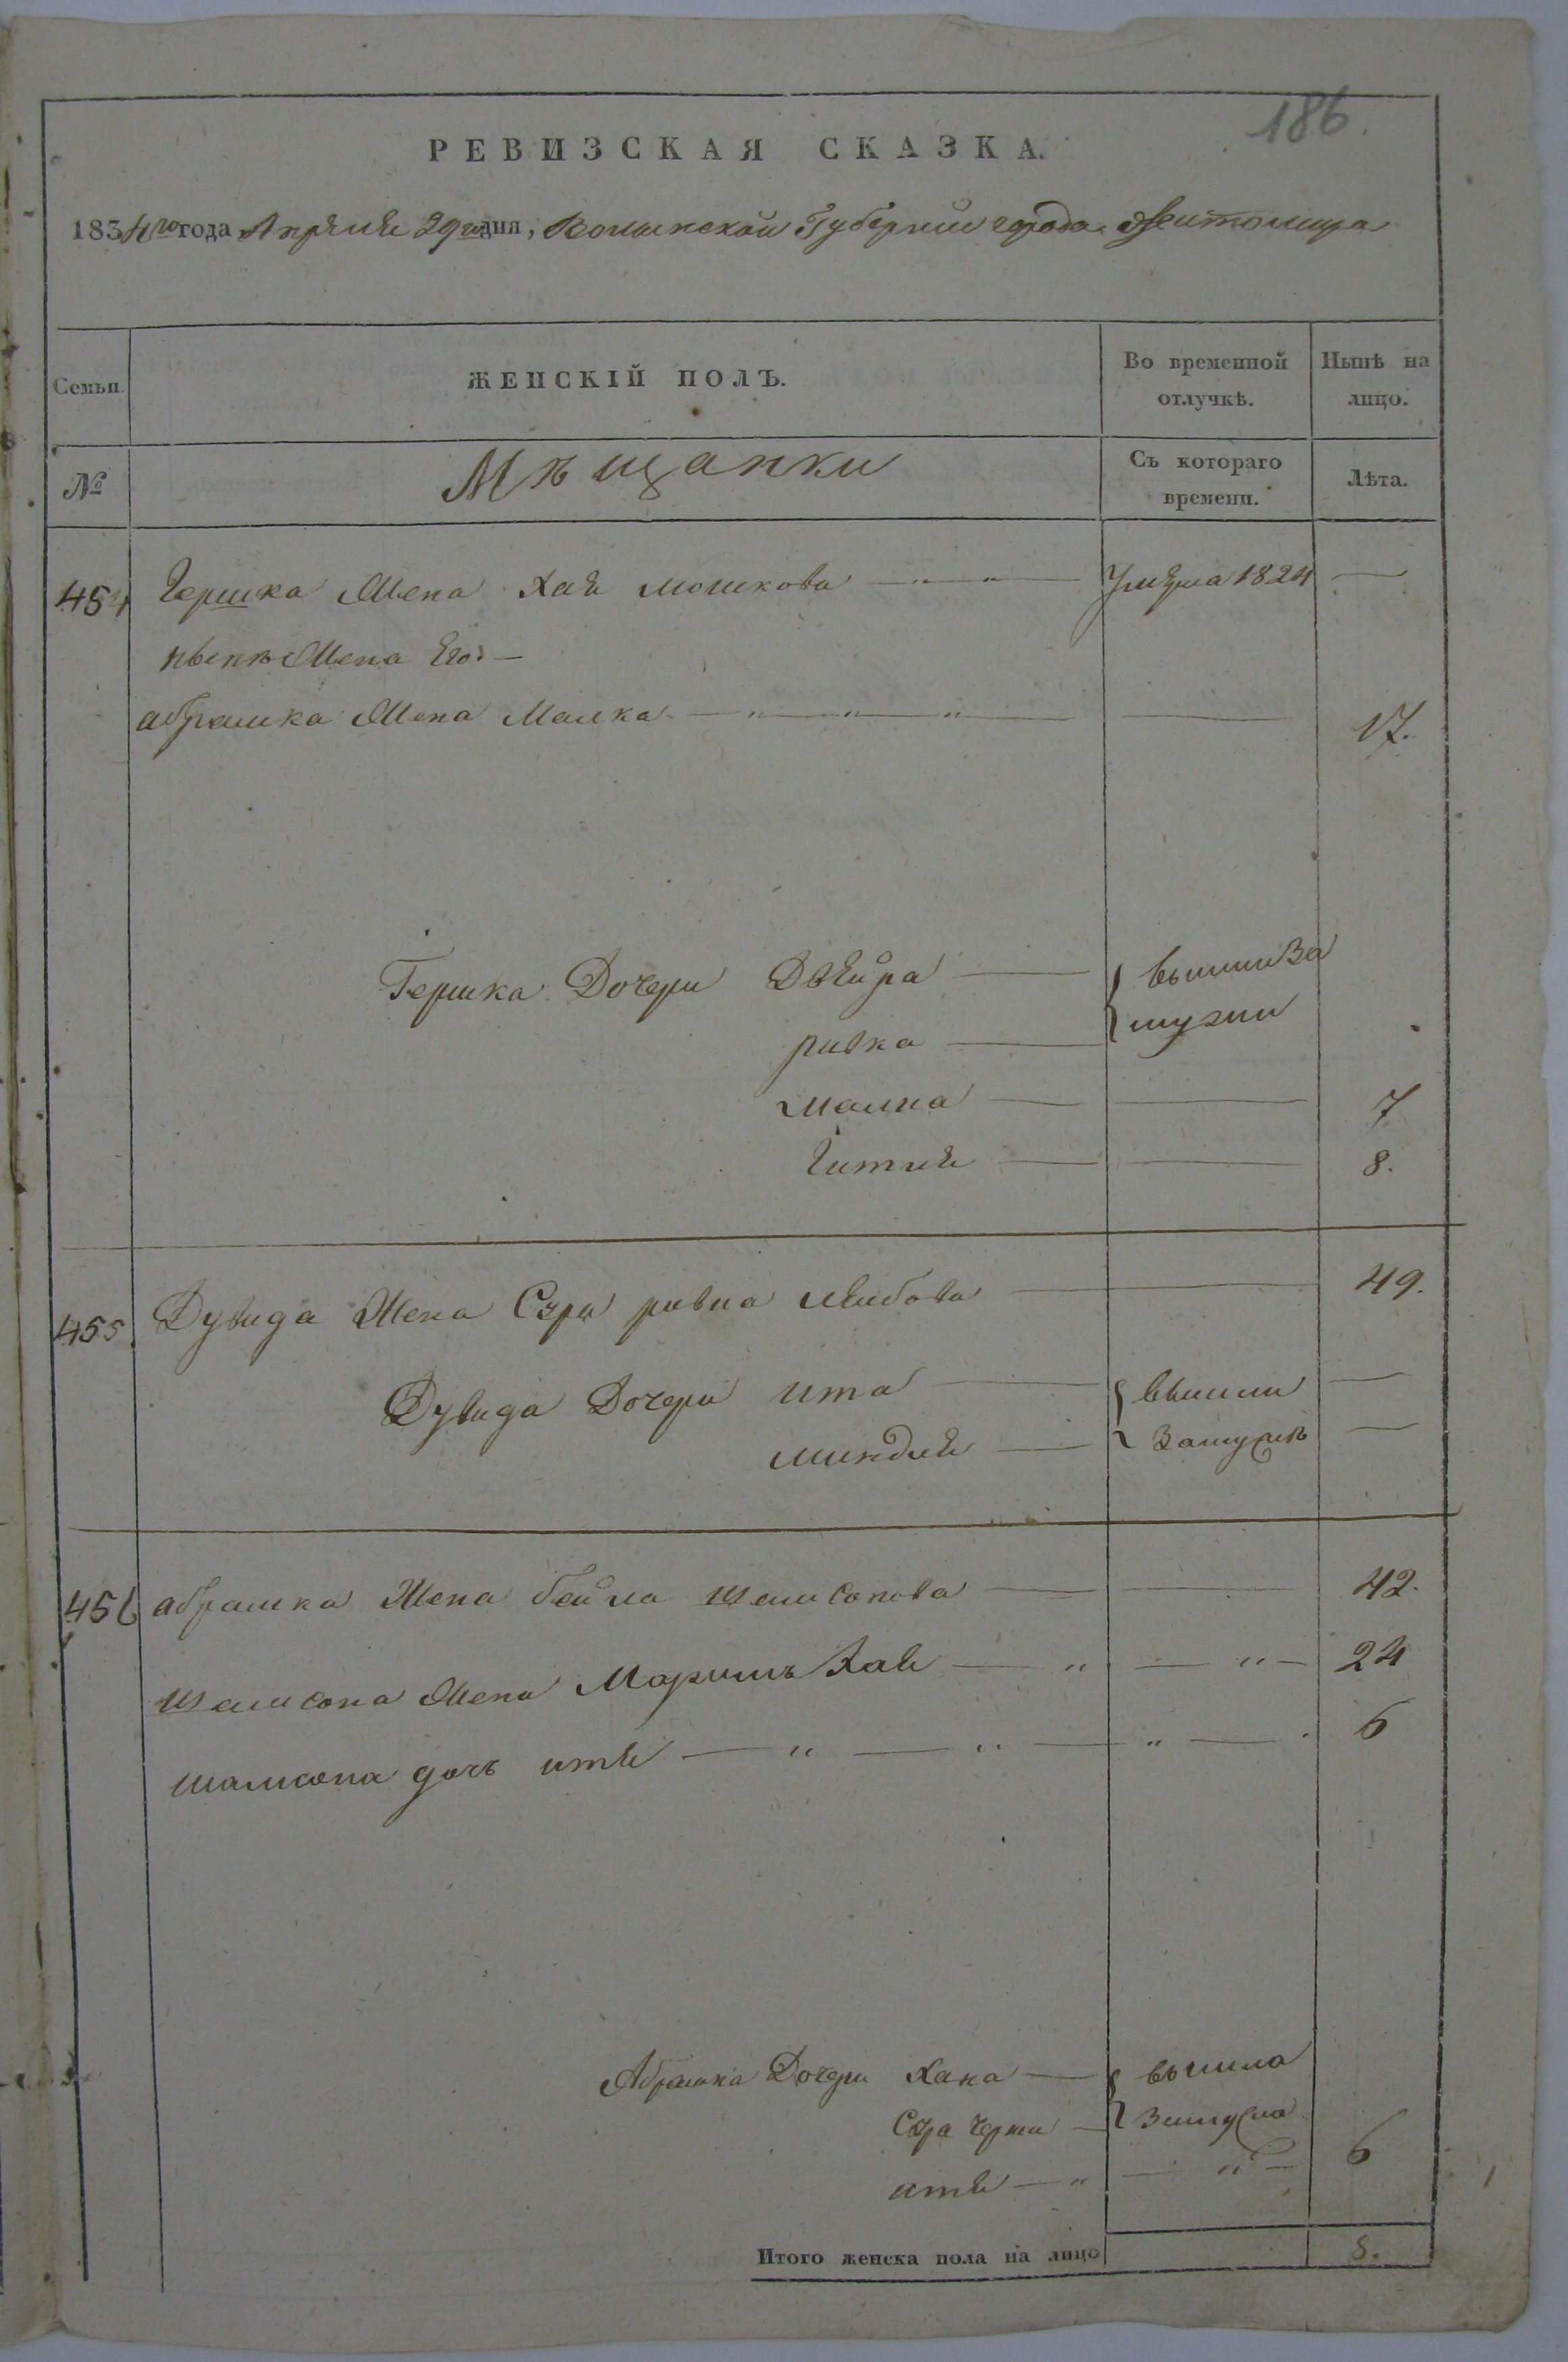 186.
РЕВИЗСКАЯ СКАЗКА.
1834го года Апреля 29го дня, Волынской Губернии города Житомира
Семьи. ЖЕНСКІЙ ПОЛЪ. Во временной отлучкѣ. Нынѣ на лицо.
№ Мѣщанки Съ котораго времени. Лѣта.
454 Гершка Жена Хая мошкова — „ — „ — Умерла 1824 —
Жена Его. —
абрашка Жена Малка — „ — „ — „ — — 17.
Гершка Дочери Двейра — { вышли За
ривка — { мужи
малка — — 7
Гитля — — 8.
455. Дувида Жена Сура ривка лейбова — — 49.
Дувида Дочери ита — { вышли —
миндля — { Замужъ —
456 абрашка Жена бейла шамсонова — — 42.
шамсона Жена Маримъ Хая — „ — „ — 24
шамсона дочь итя — „ — „ — „ — . 6
Абрашка Дочери Хана — { вышла
Сура Черна — { Замужъ
итя — „ — „ — 6
Итого женска пола на лицо 8.